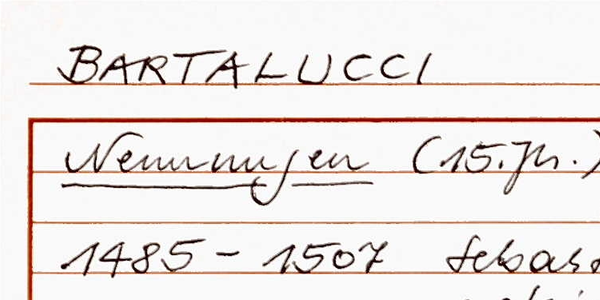 BARTALUCCI
Nennungen (15. Jh.)
1485 - 1507